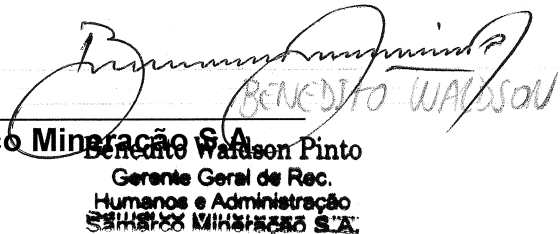 BENEDITO WALDSON
o Mineração S.A.
Benedito Waldson Pinto
Gerente Geral de Rec.
Humanos e Administração
Samarco Mineração S.A.